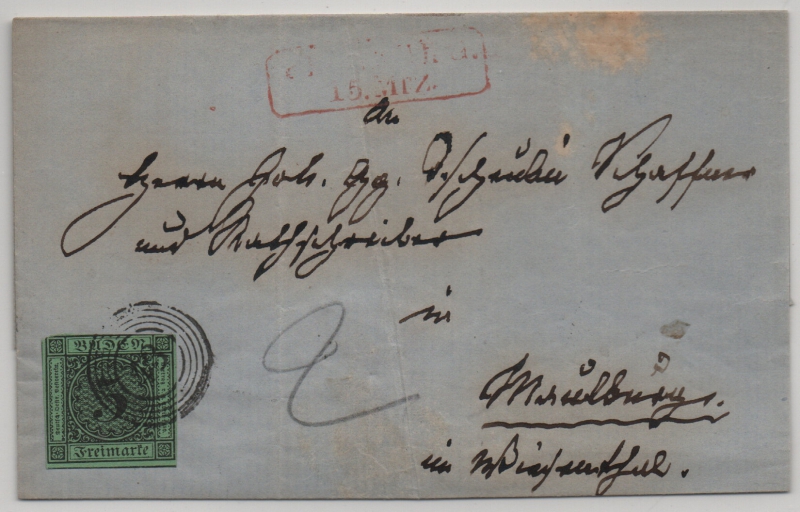 15. Mrz.
An
Herrn Joh. Gg. Tschudin Schaffner
und Rathschreiber
in
Maulburg.
im Wiesenthal.
2
BADEN
Freimarke